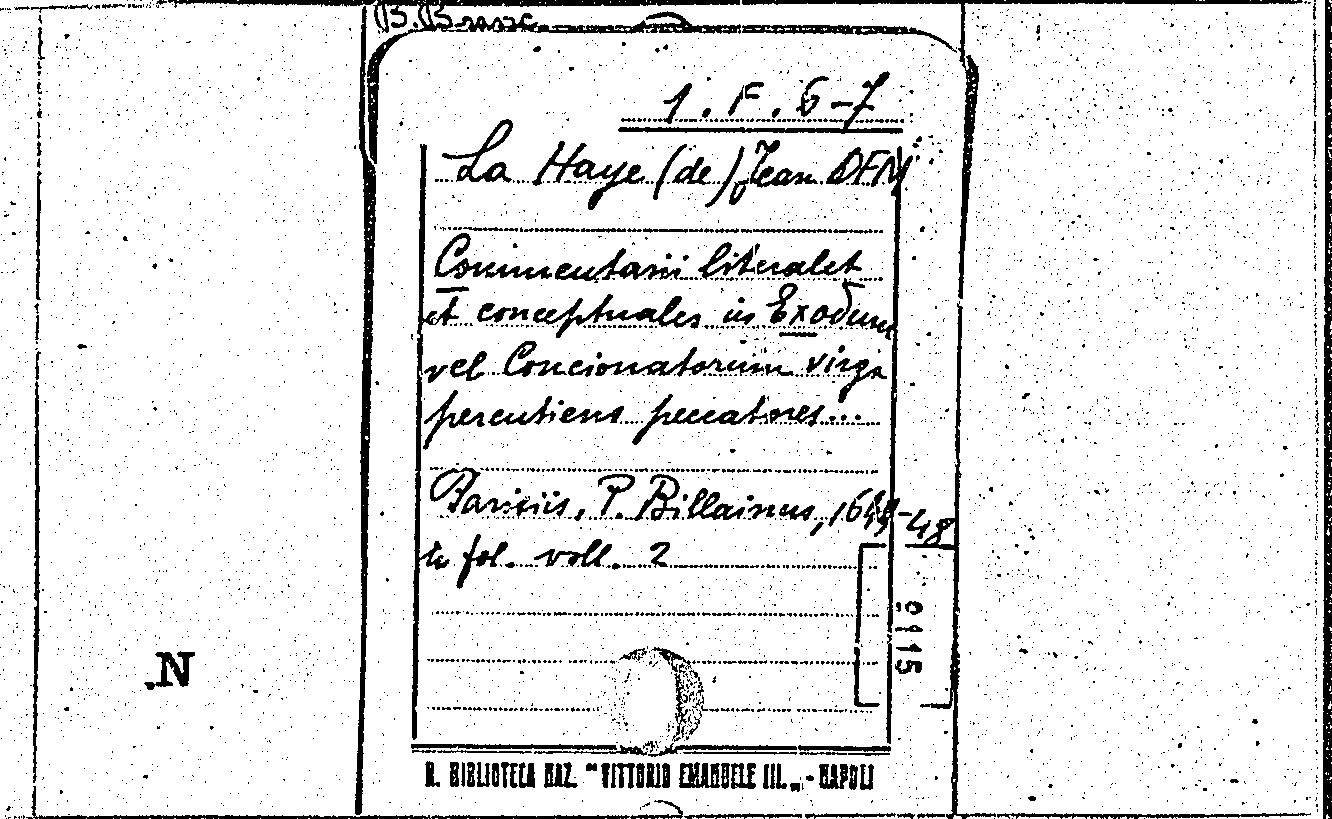 1. F. 6-7
La Haye (de) Jean OFM
Commentarii literalet
et conceptuales in Exodum
vel Concionatorum virga
percutiens peccatores...
Parisiis, P. Billainus, 1644-48
in fol. voll. 2
0115
N
R. BIBLIOTECA NAZ. "VITTORIO EMANUELE III.„ - NAPOLI